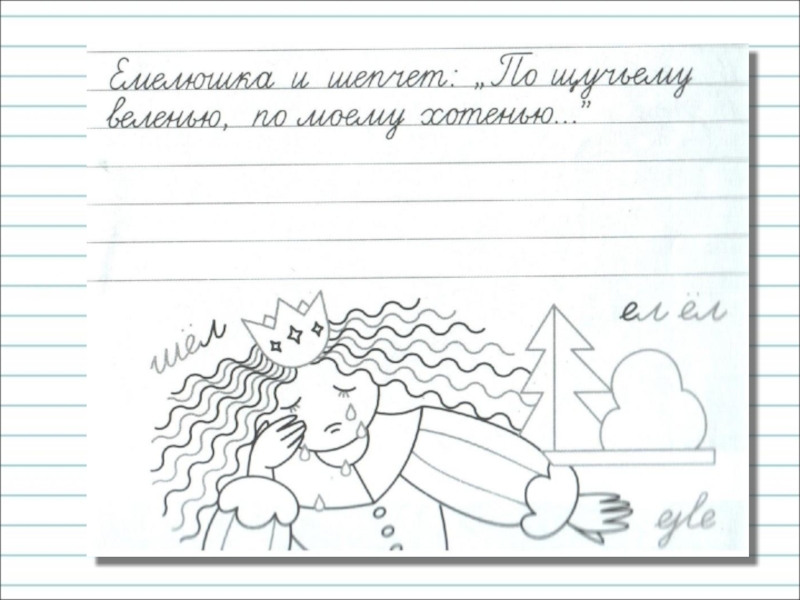 Емелюшка и шепчет: „По щучьему
веленью, по моему хотенью..."
шёл
ел ёл